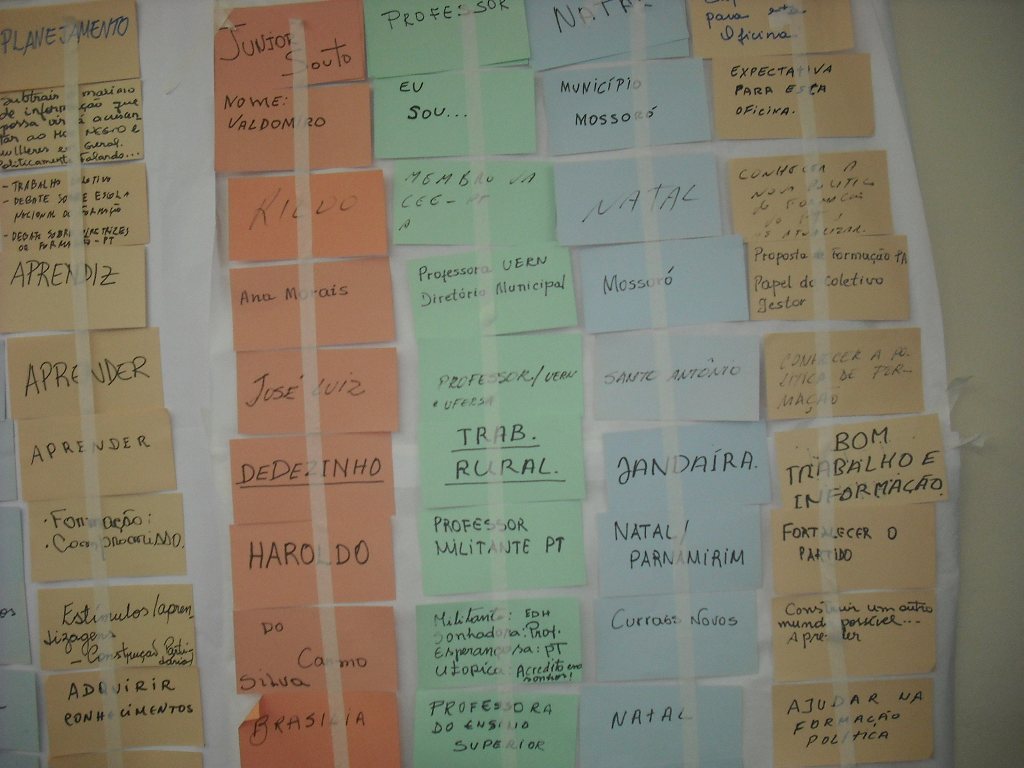 PLANEJAMENTO
subtrair o maximo
de informação que
possa vir a acusar
mulheres em geral.
Politicamente falando...
- TRABALHO COLETIVO
- DEBATE SOBRE ESCOLA
NACIONAL DE FORMAÇÃO
- DEBATE SOBRE DIRETRIZES
DE FORMAÇÃO - PT
APRENDIZ
APRENDER
APRENDER
· Formação:
· Compromisso.
Estímulos/apren
dizagens
- Construção Parti
dária!
ADQUIRIR
CONHECIMENTOS
JUNIOR
Souto
NOME:
VALDOMIRO
KILDO
Ana Morais
JOSÉ LUIZ
DEDEZINHO
HAROLDO
DO
Carmo
Silva
BRASILIA
PROFESSOR
EU
SOU...
MEMBRO DA
Professora UERN
Diretório Municipal
PROFESSOR/UERN
e UFERSA
TRAB.
RURAL.
PROFESSOR
MILITANTE PT
Militante: EDH
Sonhadora: Prof.
Esperançosa: PT
Utópica: Acredito em
sonhos!
PROFESSORA
DO ENSINO
SUPERIOR
NATAL
MUNICÍPIO
MOSSORÓ
NATAL
Mossoró
SANTO ANTÔNIO
JANDAÍRA.
NATAL/
PARNAMIRIM
Currais Novos
NATAL
para esta
Oficina
EXPECTATIVA
PARA ESTA
OFICINA.
CONHECER A
NOVA POLÍTICA
de FORMAÇÃO
DO PT E
SE ATUALIZAR.
Proposta de Formação PT
Papel do Coletivo
Gestor
CONHECER A PO-
LÍTICA DE FOR-
MAÇÃO
BOM
TRABALHO E
INFORMAÇÃO.
FORTALECER O
PARTIDO
Construir um outro
mundo possível...
Aprender
AJUDAR NA
FORMAÇÃO
POLÍTICA